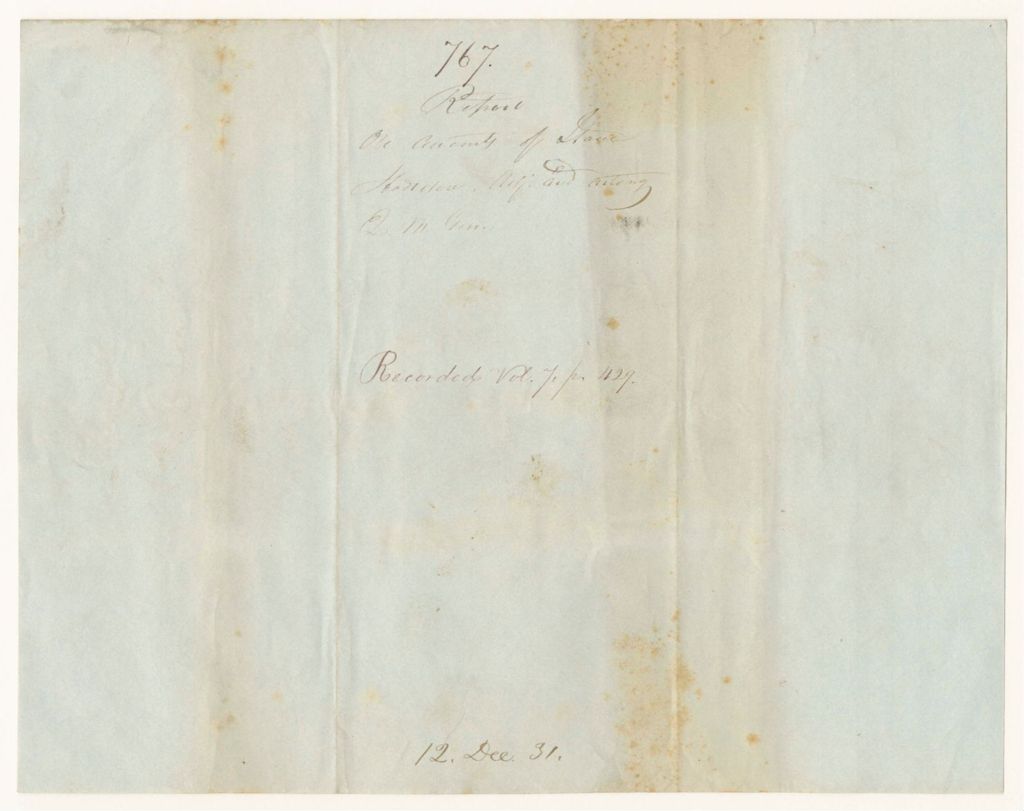 767.
Report
On accounts of Isaac
Hodsdon, Adj. and acting
Q. M. Gen.
Recorded Vol. 7. p. 429.
12. Dec. 31.